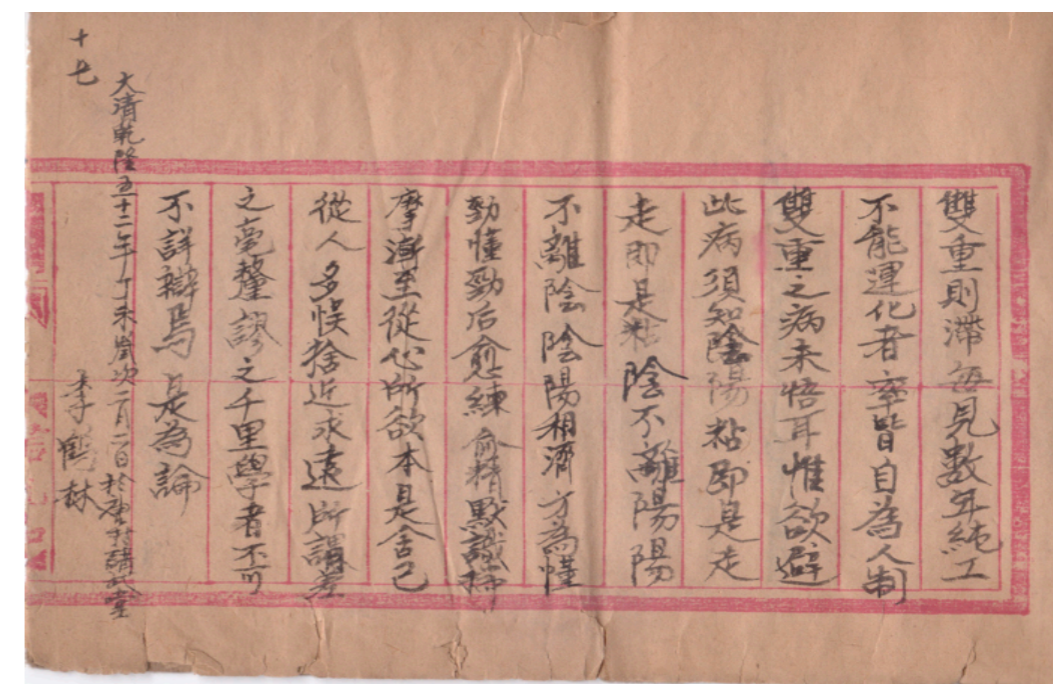 雙重則滯每見數年純工
不能運化者率皆自為人制
雙重之病未悟耳惟欲避
此病須知陰陽粘即是走
走即是粘陰不離陽陽
不離陰陰陽相濟方為懂
勁懂勁后愈練愈精默識揣
摩漸至從心所欲本是舍己
從人多悞捨近求遠所謂差
之毫釐謬之千里學者不可
不詳辯焉 是為論
大清乾隆五十二年丁未歲次二月二日於唐村講武堂
李鶴林
十七